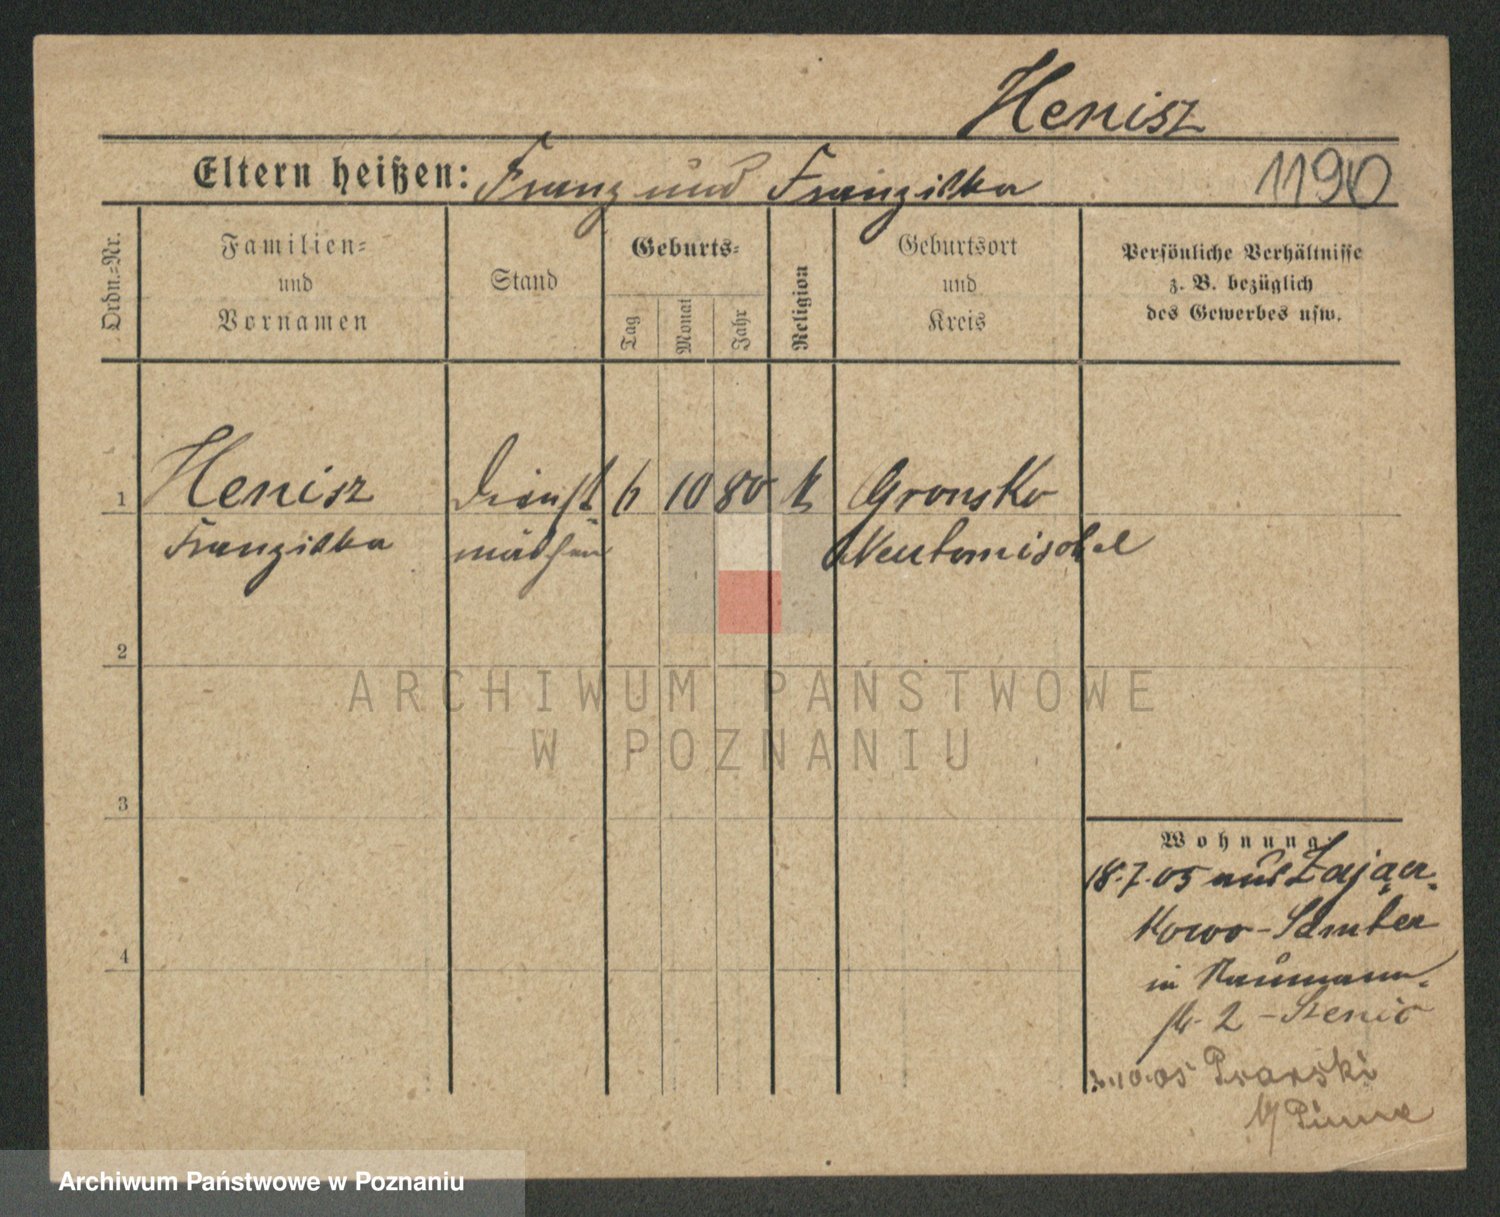 Henisz
Eltern heißen: Franz und Franziska 1190
Ordn.=Nr.
Familien=
und
Vornamen
Stand
Geburts=
Tag
Monat
Jahr
Religion
Geburtsort
und
Kreis
Persönliche Verhältnisse
z. B. bezüglich
des Gewerbes usw.
1 Henisz Dienst 6 10 80 k Gronsko
Franziska mädchen Neutomischel
2
ARCHIWUM PAŃSTWOWE
W POZNANIU
3
Wohnung:
18.7.05 aus Zając
kowo - Samter
in Naumann
str. 2 -
4
10.05
b/ Pinne
Archiwum Państwowe w Poznaniu